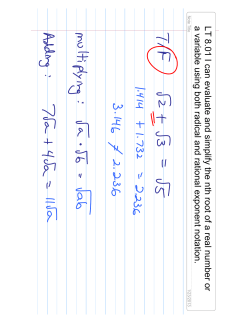 LT 8.01 I can evaluate and simplify the nth root of a real number or
a variable using both radical and rational exponent notation.
T/F √2 + √3 = √5
1.414 + 1.732 = 2.236
3.146 ≠ 2.236
multiplying: √a · √b = √ab
Adding: 7√a + 4√a = 11√a